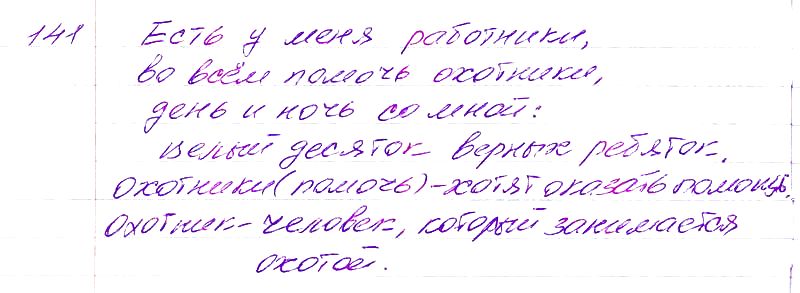 141 Есть у меня работники,
во всём помочь охотники,
день и ночь со мной:
целый десяток верных ребяток.
охотники (помочь) - хотят оказать помощь.
Охотник - человек, который занимается
охотой.